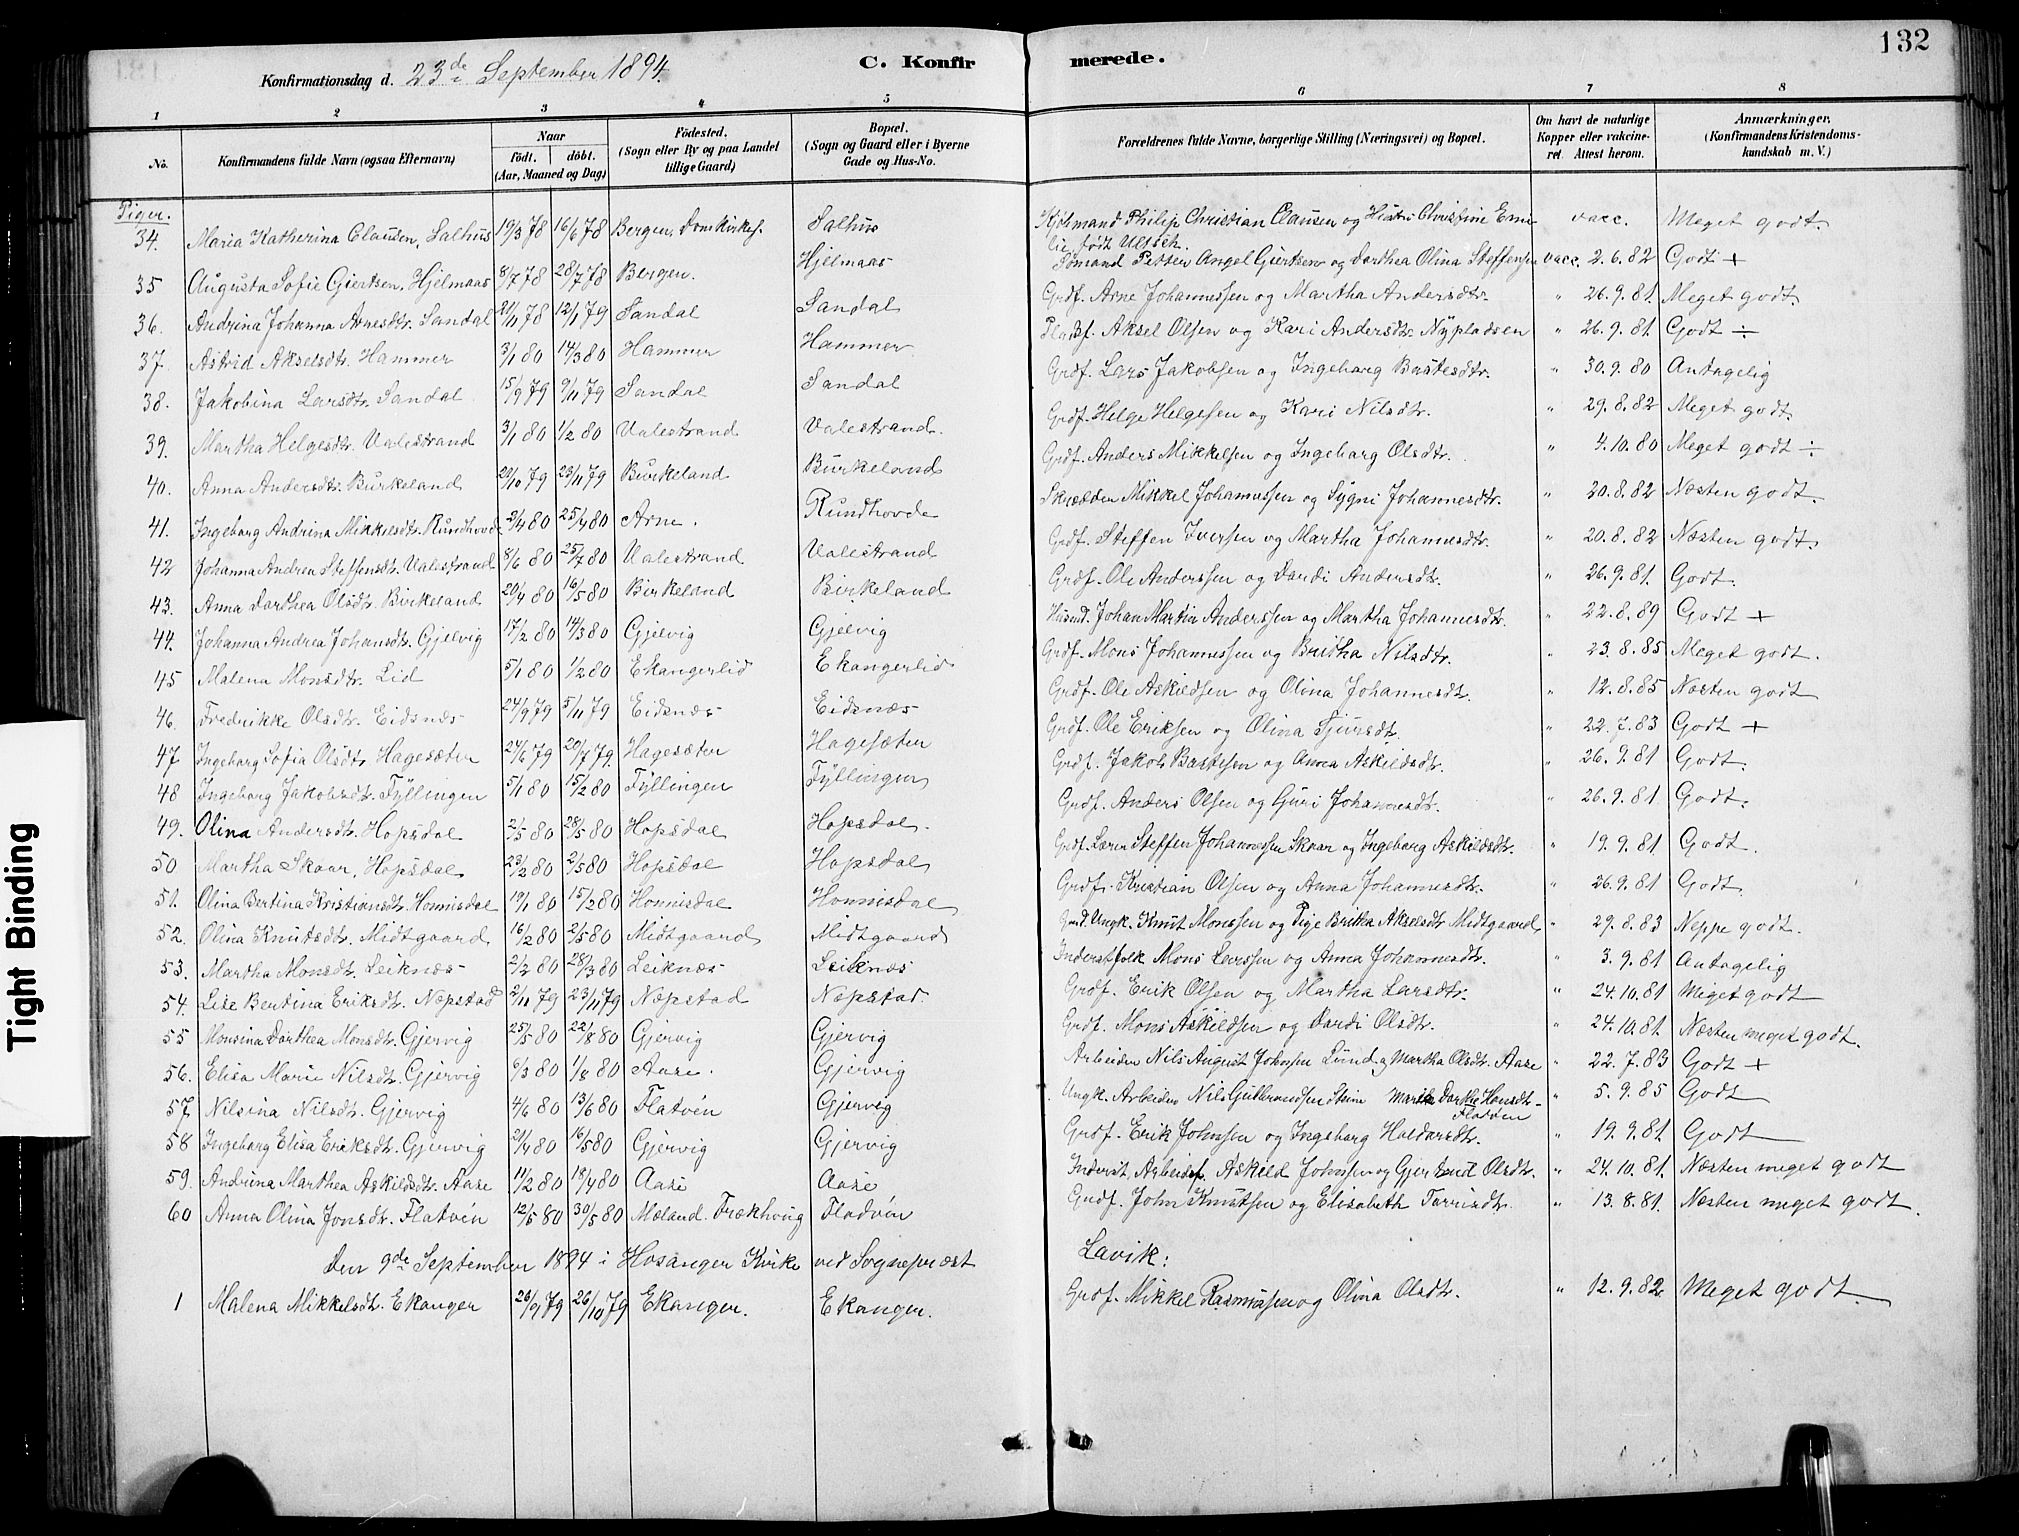 132
Konfirmationsdag d. 23de September 1894.
C. Konfirmerede.
1 2 3 4 5 6 7 8
No. Konfirmandens fulde Navn (ogsaa Efternavn) Naar födt. döbt. (Aar, Maaned og Dag) Födested. (Sogn eller By og paa Landet tillige Gaard) Bopæl. (Sogn og Gaard eller i Byerne Gade og Hus-No.) Forældrenes fulde Navne, borgerlige Stilling (Næringsvei) og Bopæl. Om havt de naturlige Kopper eller vakcineret. Attest herom. Anmærkninger. (Konfirmandens Kristendomskundskab m. V.)
Piger.
34. Maria Katherina Clausen, Salhus 19/3 78 16/6 78 Bergen, Domkirkes. Salhus Kjøbmand Philip Christian Clausen og Hustru Christine Emilie født Ultsch. vacc. Meget godt.
35 Augusta Sofie Giertsen, Hjelmaas 8/7 78 28/7 78 Bergen. Hjelmaas Sømand Petter Angel Giertsen og Dorthea Olina Steffensen vacc. 2.6.82 Godt +
36. Andrina Johanna Arnesdtr. Sandal 21/11 78 12/1 79 Sandal Sandal Grdf. Arne Johannessen og Martha Andersdtr. " 26.9.81. Meget godt.
37. Astrid Akselsdtr. Hammer 3/1 80 14/3 80 Hammer Hammer Pladsf. Aksel Olsen og Kari Andersdtr. Nypladsen " 26.9.81. Godt ÷
38. Jakobina Larsdtr. Sandal 15/9 79 9/11 79 Sandal Sandal Grdf. Lars Jakobsen og Ingeborg Bastesdtr. " 30.9.80 Antagelig
39. Martha Helgesdtr. Valestrand 3/1 80 1/2 80 Valestrand Valestrand. Grdf. Helge Helgesen og Kari Nilsdtr. " 29.8.82 Meget godt.
40. Anna Andersdtr. Birkeland 29/10 79 23/11 79 Birkeland Birkeland Grdf. Anders Mikkelsen og Ingeborg Olsdtr. " 4.10.80 Meget godt ÷
41. Ingeborg Andrina Mikkelsdtr. Rundhovde 2/4 80 25/4 80 Arne. Rundhovde Skrædder Mikkel Johannessen og Sygni Johannesdtr. " 20.8.82 Næsten godt.
42 Johanna Andrea Steffensdtr. Valestrand 8/6 80 25/7 80 Valestrand Valestrand Grdf. Steffen Iversen og Martha Johannesdtr. " 20.8.82 Næsten godt.
43. Anna Dorthea Olsdtr. Birkeland 20/4 80 16/5 80 Birkeland Birkeland Grdf. Ole Anderssen og Dordi Andersdtr. " 26.9.81. Godt.
44. Johanna Andrea Johansdtr. Gjelvig 17/2 80 14/3 80 Gjelvig Gjelvig Husmd. Johan Martin Anderssen og Martha Johannesdtr. " 22.8.89 Godt +
45 Malena Monsdtr. Lid 5/1 80 1/2 80 Ekangerlid Ekangerlid Grdf. Mons Johannessen og Britha Nilsdtr. " 23.8.85 Meget godt.
46. Fredrikke Olsdtr. Eidsnæs 24/9 79 5/11 79 Eidsnæs Eidsnæs Grdf. Ole Askildsen og Olina Johannesdtr. " 12.8.85 Næsten godt
47 Ingeborg Sofia Olsdtr. Hagesæter 24/6 79 20/7 79. Hagesæter Hagesæter Grdf. Ole Eriksen og Olina Sjursdtr. " 22.7.83 Godt +
48 Ingeborg Jakobsdtr. Fyllingen 5/1 80 15/2 80 Fyllingen Fyllingen Grdf. Jakob Bastesen og Anna Askildsdtr. " 26.9.81 Godt.
49. Olina Andersdtr. Hopsdal 2/5 80 28/5 80 Hopsdal Hopsdal. Grdf. Anders Olsen og Guri Johannesdtr. " 26.9.81 Godt.
50 Martha Skaar, Hopsdal 23/2 80 2/5 80 Hopsdal Hopsdal Grdf. Lærer Steffen Johannessen Skaar og Ingeborg Askildsdtr. " 19.9.81. Godt.
51. Olina Bertina Kristiansdtr. Honnisdal 19/1 80 15/2 80 Honnisdal Honnisdal Grdf. Kristian Olsen og Anna Johannesdtr. " 26.9.81 Godt.
52. Olina Knutsdtr. Midtgaard 16/2 80 2/5 80 Midtgaard Midtgaard Ungk. Knut Monssen og Pige Britha Akselsdtr. Midtgaard " 29.8.83 Neppe godt.
53. Martha Monsdtr. Leiknæs 2/2 80 28/3 80 Leiknæs Leiknæs Inderstfolk Mons Larssen og Anna Johannesdtr. " 3.9.81 Antagelig
54. Lise Bertina Eriksdtr. Næpstad 2/11 79 23/11 79 Næpstad Næpstad. Grdf. Erik Olsen og Martha Larsdtr. " 24.10.81 Meget godt
55 Monsina Dorthea Monsdtr. Gjervig 25/5 80 22/8 80 Gjervig Gjervig Grdf. Mons Askildsen og Dordi Olsdtr. " 24.10.81. Næsten meget godt.
56. Elisa Marie Nilsdtr. Gjervig 6/3 80 1/8 80 Aase. Gjervig Arbeider Nils August Johnsen Lund og Martha Olsdtr. Aase " 22.7.83 Godt +
57 Nilsina Nilsdtr. Gjervig 4/6 80 13/6 80 Flatvén Gjervig Ungk. Arbeider Nils Gulbrandsen Steim Dorthe Hansdtr. Flatvén " 5.9.85 Godt
58 Ingeborg Elisa Eriksdtr. Gjervig 21/4 80 16/5 80 Gjervig Gjervig Grdf. Erik Johnsen og Ingeborg Haldorsdtr. " 19.9.81. Godt
59. Andrina Marthea Askildsdtr. Aase 11/2 80 18/4 80 Aase Aase Inderst, Arbeidsf. Askild Johnsen og Gjertrud Olsdtr. " 24.10.81. Næsten meget godt
60 Anna Olina Jonsdtr. Flatvén 12/5 80 30/5 80 Mæland. Frækhoug Fladvén Grdf. John Knutsen og Elisabeth Torrisdtr. " 13.8.81. Næsten meget godt.
Den 9de September 1894 i Hosanger Kirke ved Sogneprest Lavik:
1 Malena Mikkelsdtr. Ekanger 26/9 79 26/10 79 Ekanger. Ekanger. Grdf. Mikkel Rasmussen og Olina Olsdtr. " 12.9.82. Meget godt.
Tight Binding